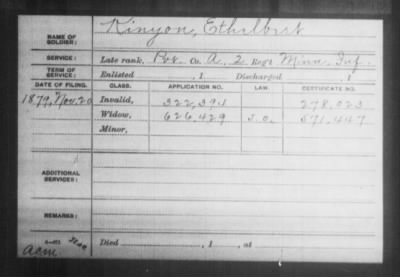 NAME OF SOLDIER: Kinyon, Ethelbert
SERVICE: Late rank, Pvt. Co. A, 2 Reg't Minn. Inf.
TERM OF SERVICE: Enlisted , 1 Discharged , 1
DATE OF FILING. CLASS. APPLICATION NO. LAW. CERTIFICATE NO.
1879, Nov. 20 Invalid, 322,394 278,023
Widow, 626,429 571,447
Minor,
ADDITIONAL SERVICES:
REMARKS:
Died , 1 , at
acm